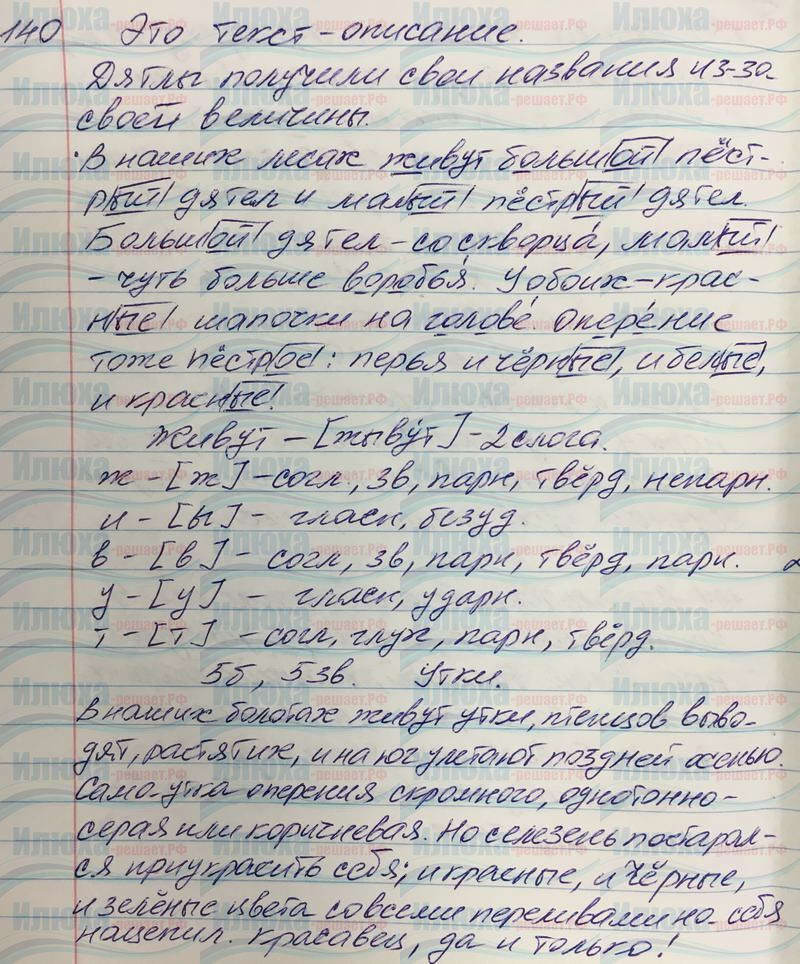 140 Это текст-описание.
Дятлы получили свои названия из-за
своей величины.
В наших лесах живут большой пёст-
рый дятел и малый пёстрый дятел.
Большой дятел - со скворца, малый
- чуть больше воробья. У обоих - крас-
ные шапочки на голове. Оперение
тоже пёстрое: перья и чёрные, и белые,
и красные.
Живут - [жыву́т] - 2 слога.
ж - [ж] - согл, зв, парн, твёрд, непарн.
и - [ы] - гласн, безуд.
в - [в] - согл, зв, парн, твёрд, парн.
у - [у] - гласн, ударн.
т - [т] - согл, глух, парн, твёрд.
5б, 5 зв. Утки.
В наших болотах живут утки, птенцов выво-
дят, растят их, и на юг улетают поздней осенью.
Сама утка оперения скромного, однотонно-
серая или коричневая. Но селезень постарал-
ся приукрасить себя; и красные, и чёрные,
и зелёные цвета со всеми переливами на себя
нацепил. Красавец, да и только!
Илюха-решает.РФ